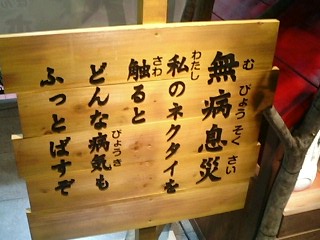 無病息災
むびょうそくさい
私のネクタイを
わたし
触ると
さわ
どんな病気も
びょうき
ふっとばすぞ